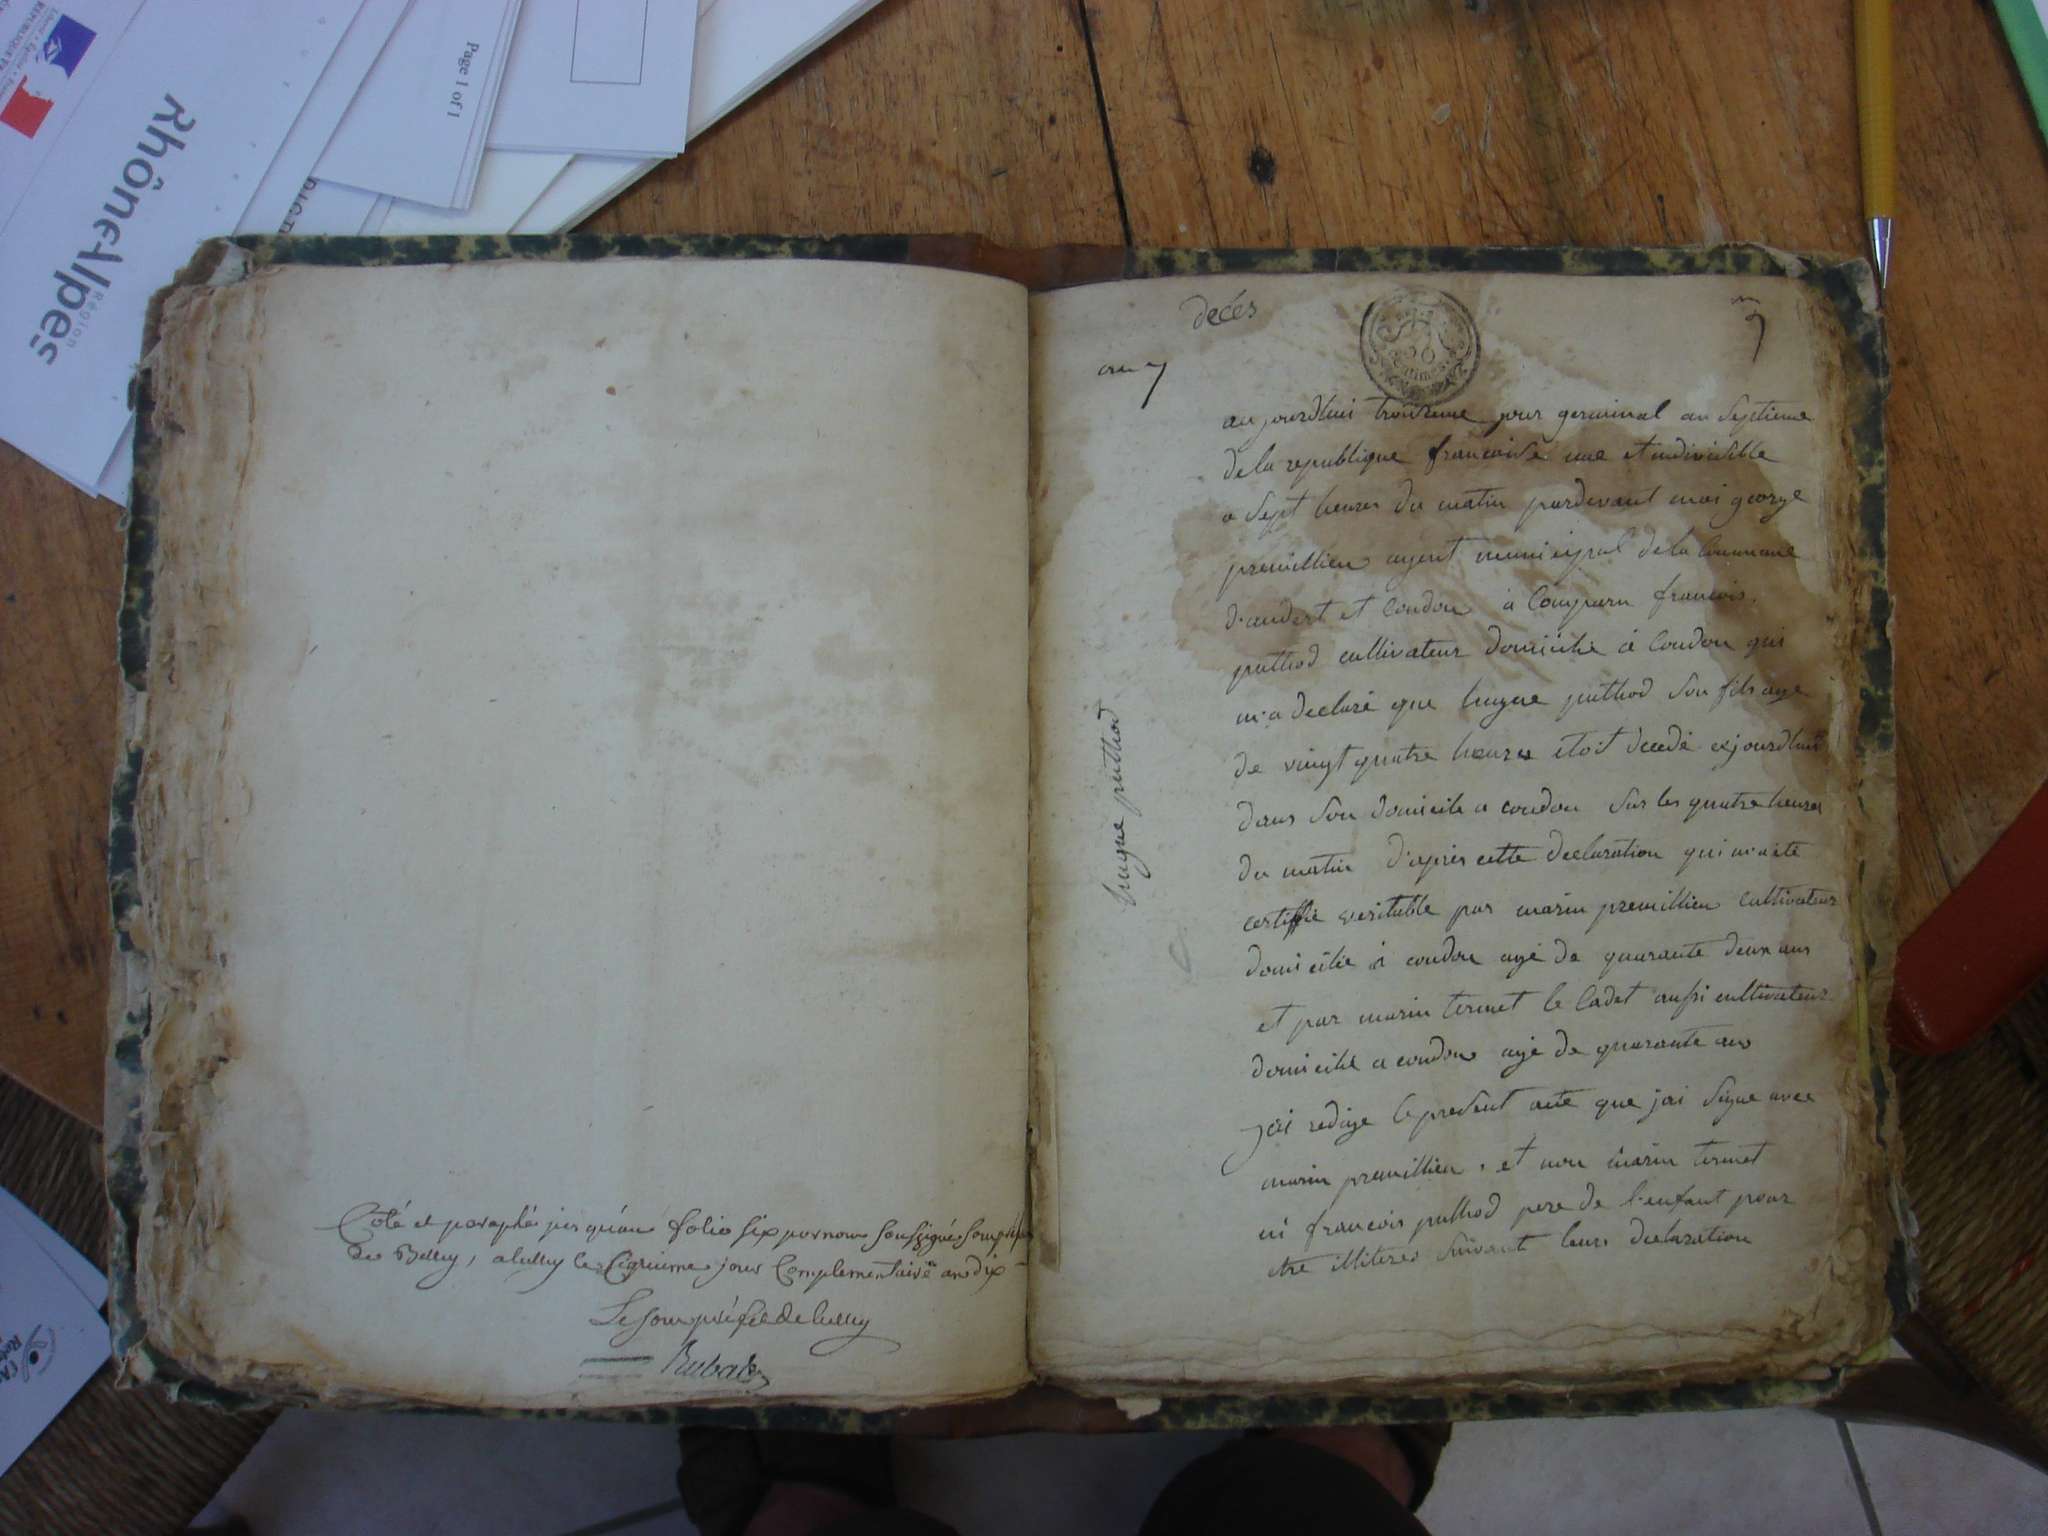 Rhône-Alpes
Région
Page 1 of 1
Coté et paraphé jusqu'au folio six par nous soussigné sousprefet
de Belley, a belley le cinquieme jour Complementaire an dix
Le sous préfet de belley
Rubat
décès
an 7
50
centimes
hugue puthod
aujourdhui troisieme jour germinal an septieme
de la republique francaise une et indivisible
a sept heures du matin pardevant moi george
premillieu agent municipal de la Commune
d'andert et Condon à Comparu francois
puthod cultivateur domicilié à Condon qui
m'a declaré que hugue puthod son fils agé
de vingt quatre heures etoit decedé cejourdhui
dans son domicile a condon sur les quatre heures
du matin d'apres cette declaration qui m'a été
certiffié veritable par marin premillieu cultivateur
domicilié à condon agé de quarante deux ans
et par marin termet le Cadet aussi cultivateur
domicilié a condon agé de quarante ans
jai redigé le present acte que jai signé avec
marin premillieu, et non marin termet
ni francois puthod pere de l'enfant pour
etre illiteres suivant leurs declaration